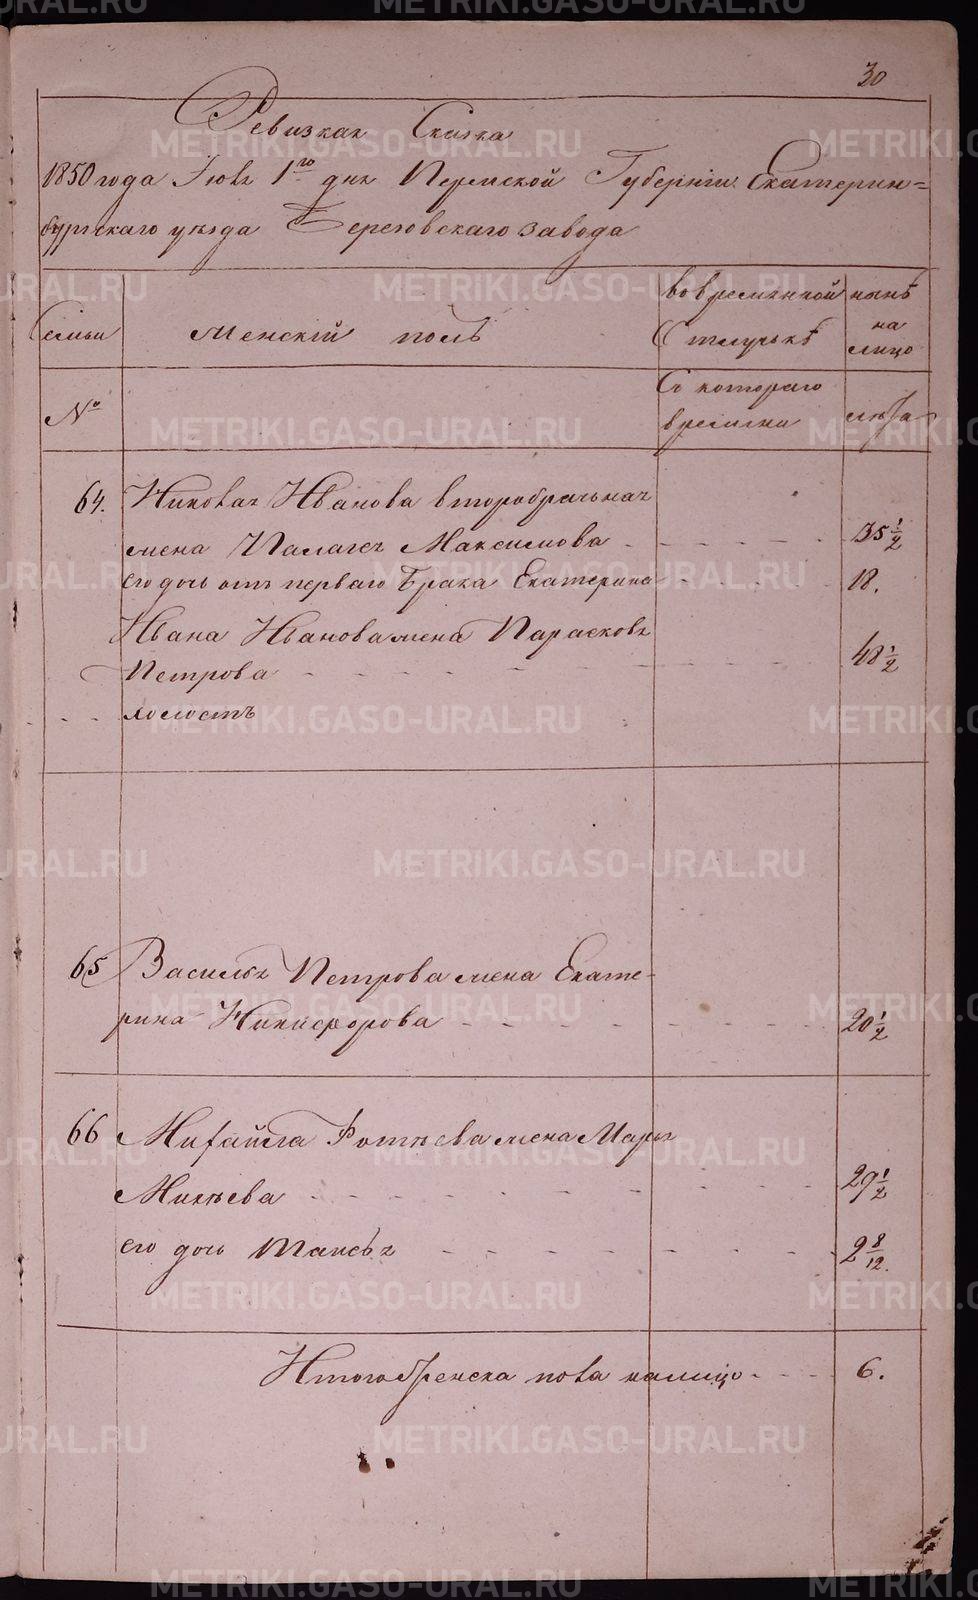 30
Ревизкая Сказка
1850 года Июля 1го дня Пермской Губернии Екатерин=
бургскаго уезда Березовскаго завода
Семьи
Женскiй полъ
во временной
Отлучкѣ
нынѣ
на
лицо
№
Съ котораго
времени
лѣта
64. Иванова второбрачная
жена Палагея Максимова - - - - - 35 1/2
его дочь отъ перваго брака Екатерина - - - - 18.
Ивана Иванова жена Парасковья
Петрова - - - - - - - 48 1/2
- - холостъ
65 Василья Петрова жена Екате-
рина Никифорова - - - - - - - 20 1/2
66 Михайла Фотѣева жена Марья
Микѣева - - - - - - - - 29 1/2
его дочь Таисья - - - - - - - 2 8/12.
Итого женска пола налицо - - - 6.
METRIKI.GASO-URAL.RU